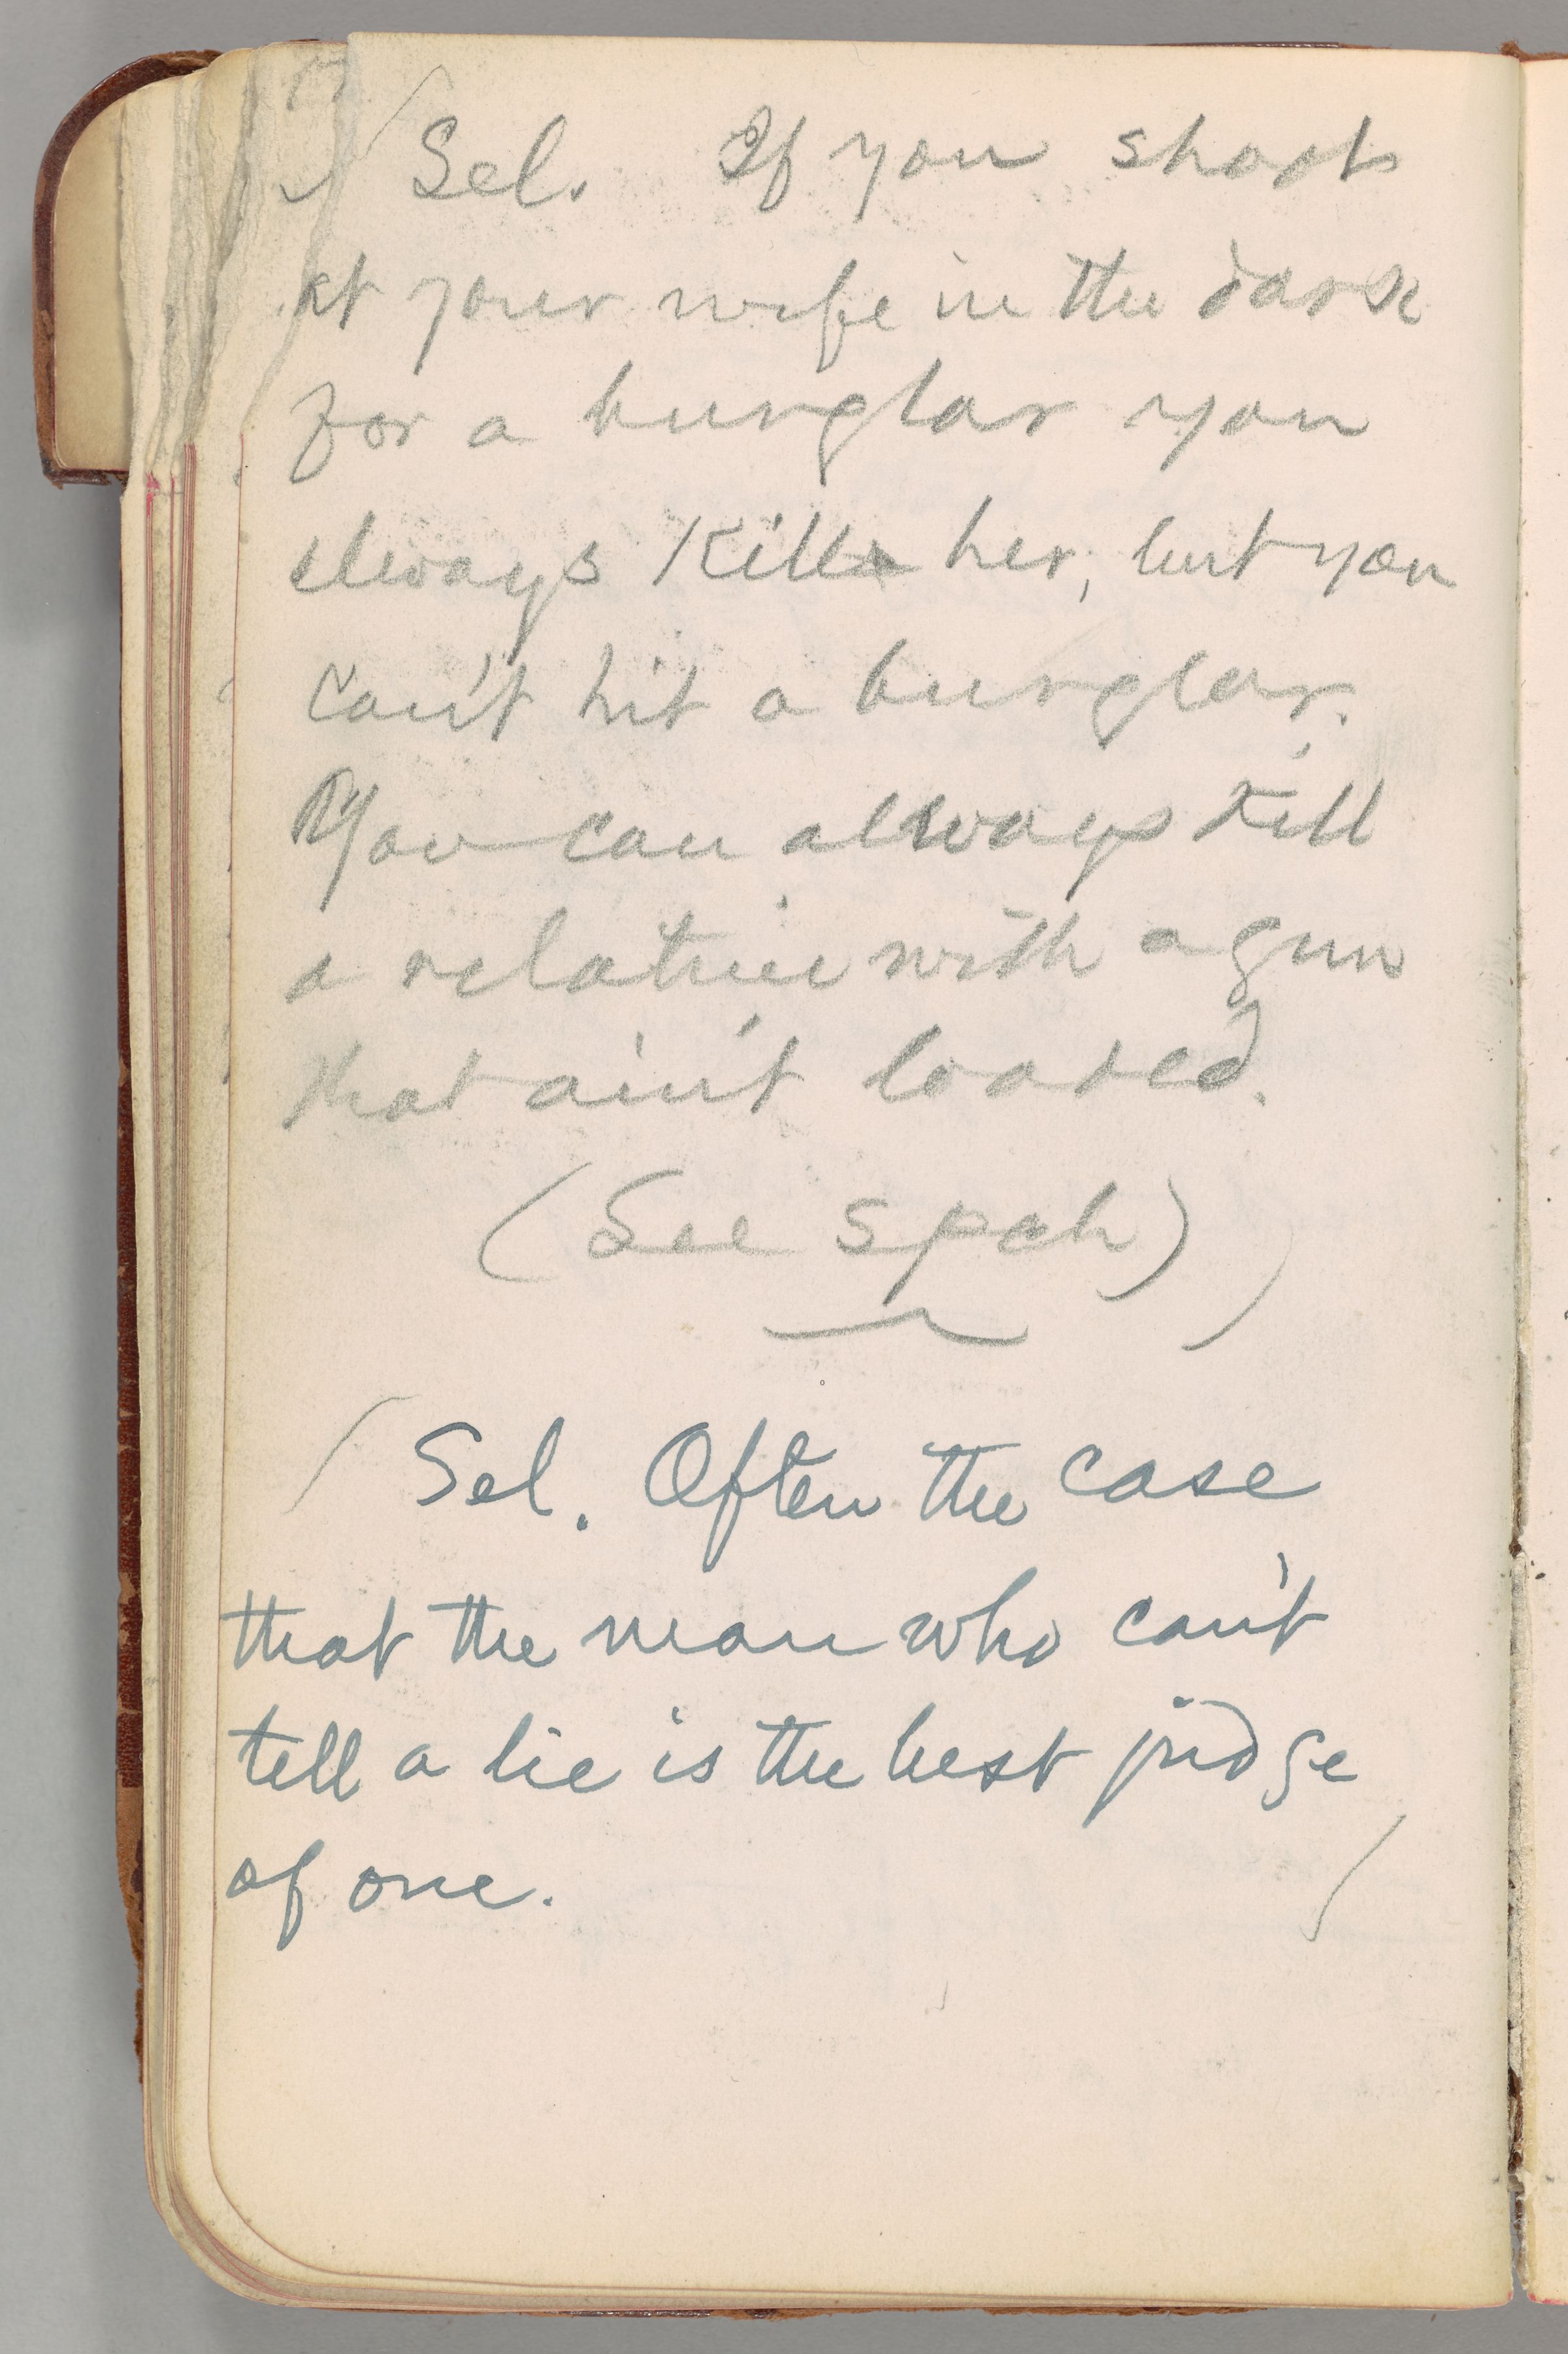 Sel. If you shoot
at your wife in the dark
for a burglar you
always kill her, but you
can't hit a burglar.
You can always kill
a relative with a gun
that ain't loaded.
(See spch)
Sel. Often the case
that the man who can't
tell a lie is the best judge
of one.